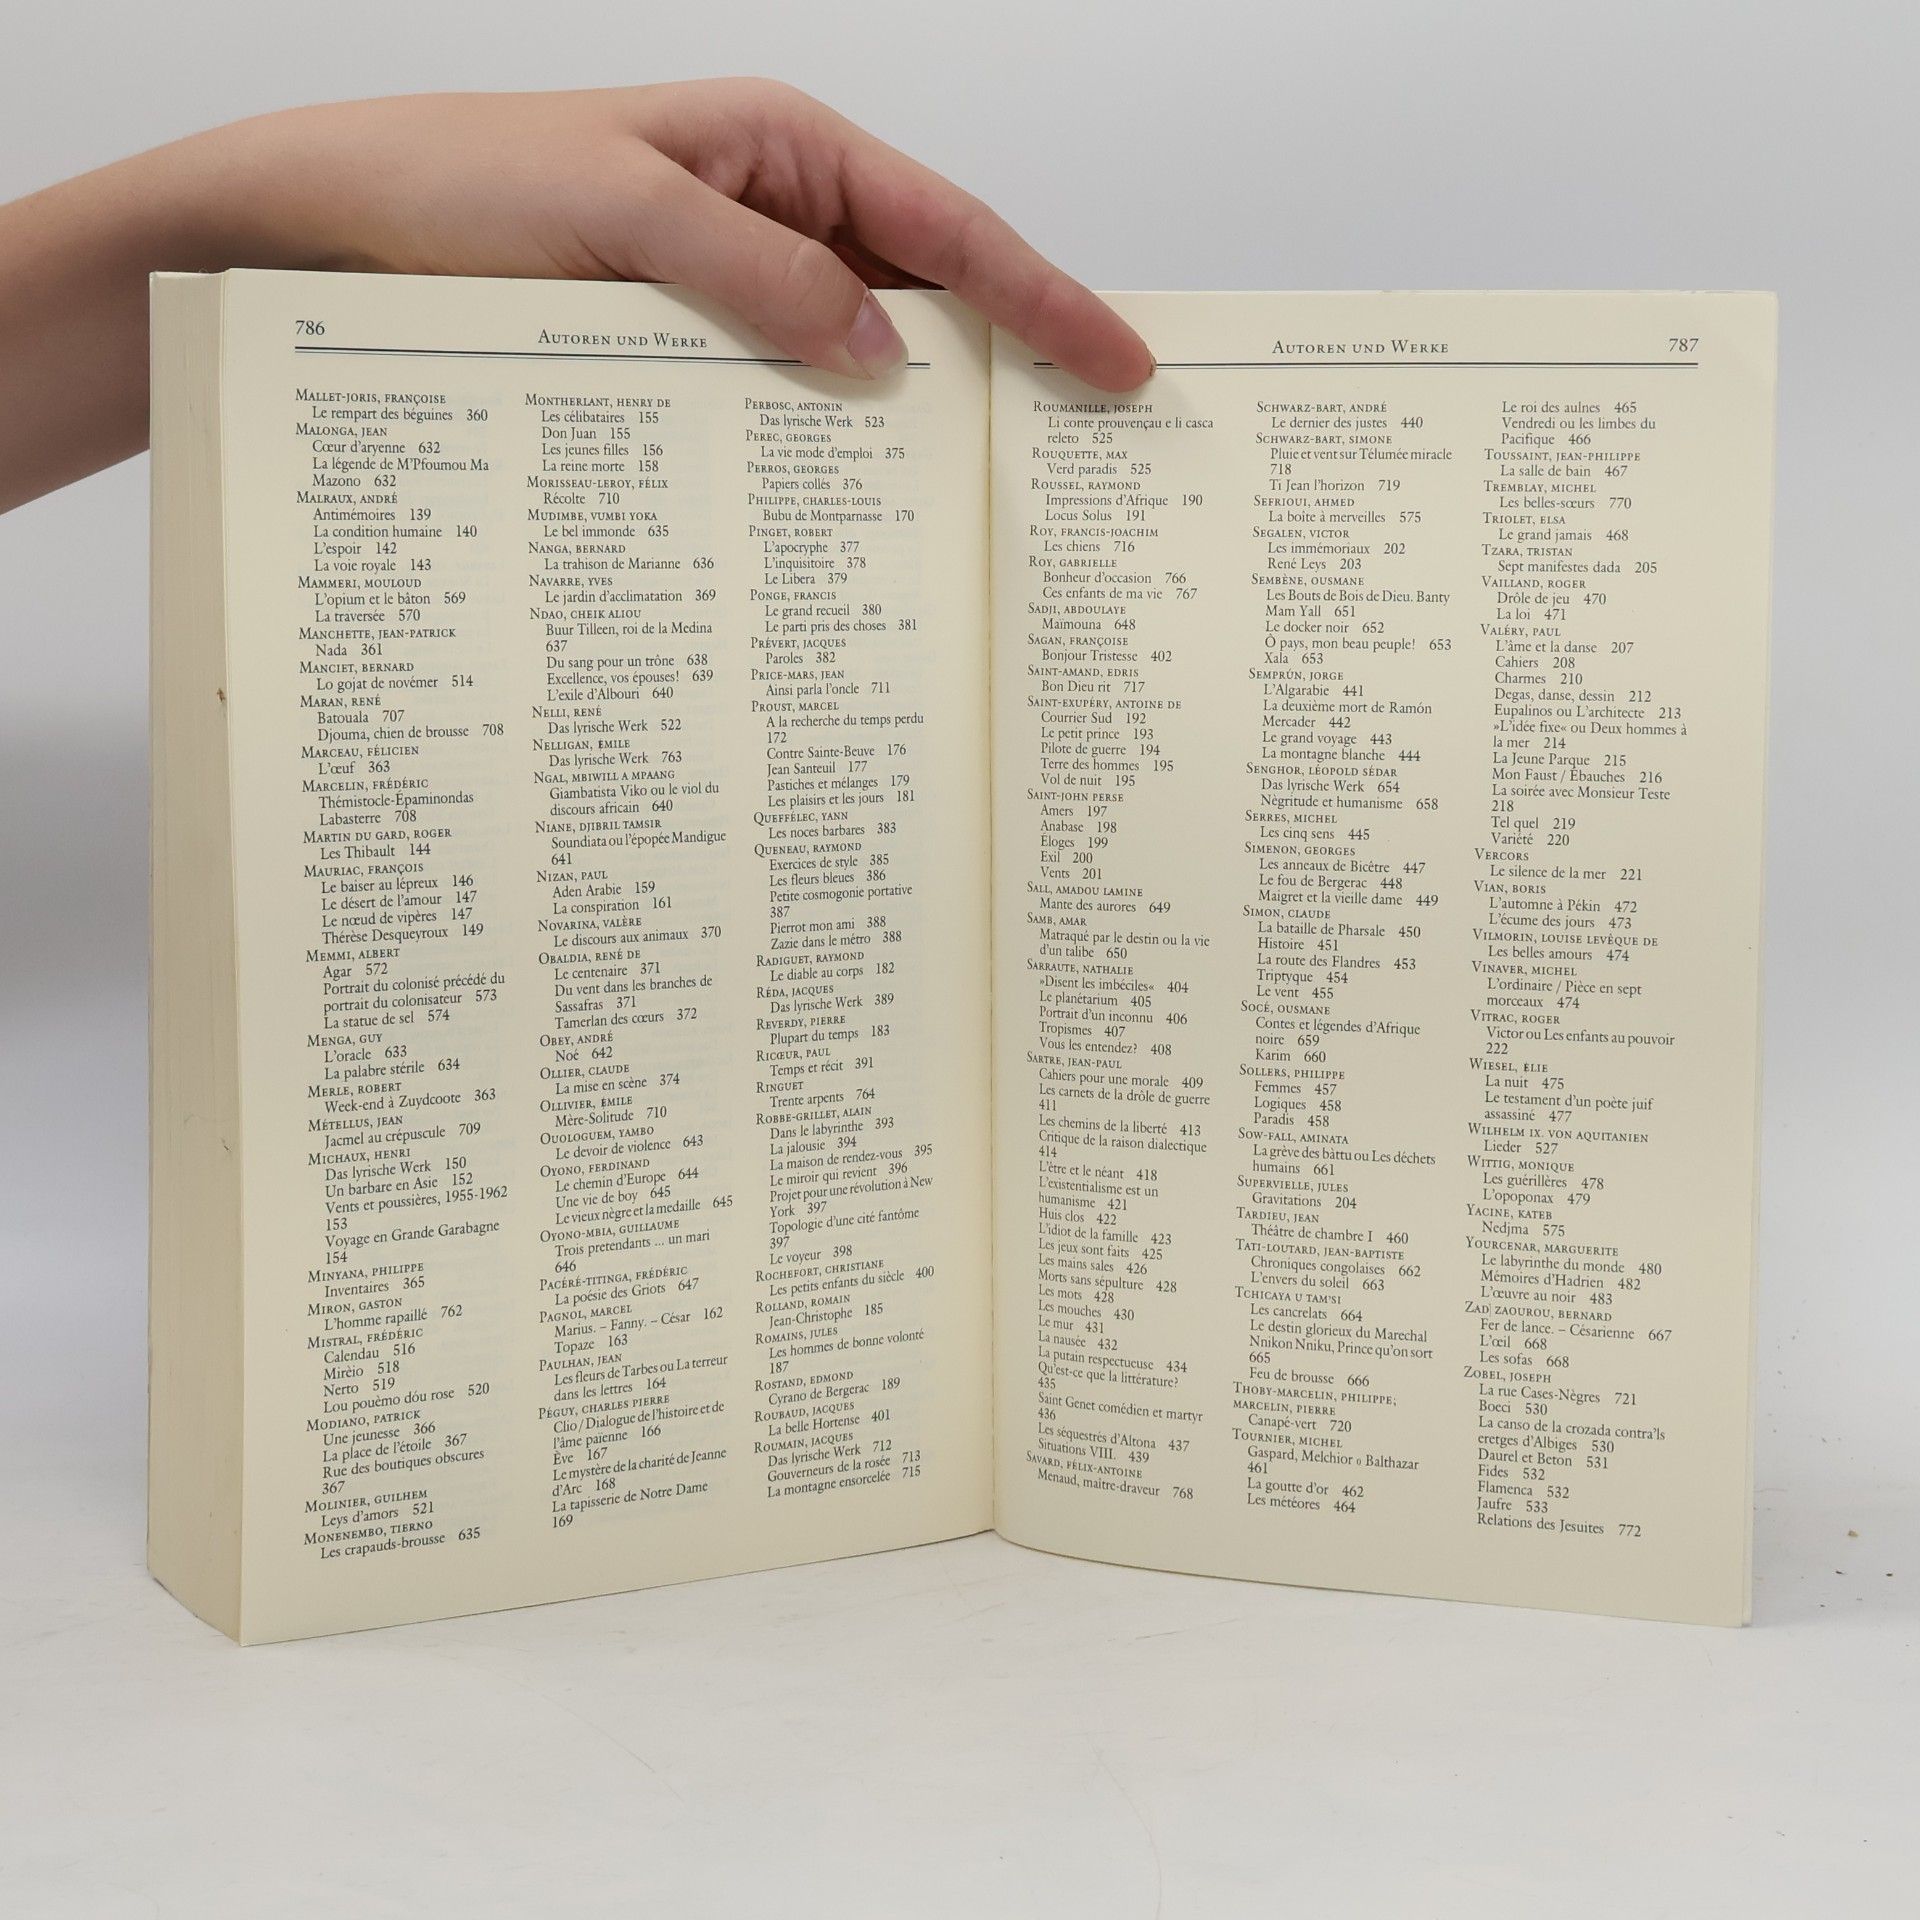 786
AUTOREN UND WERKE
MALLET-JORIS, FRANÇOISE
Le rempart des béguines 360
MALONGA, JEAN
Cœur d'aryenne 632
La légende de M'Pfoumou Ma
Mazono 632
MALRAUX, ANDRÉ
Antimémoires 139
La condition humaine 140
L'espoir 142
La voie royale 143
MAMMERI, MOULOUD
L'opium et le bâton 569
La traversée 570
MANCHETTE, JEAN-PATRICK
Nada 361
MANCIET, BERNARD
Lo gojat de novémer 514
MARAN, RENÉ
Batouala 707
Djouma, chien de brousse 708
MARCEAU, FÉLICIEN
L'œuf 363
MARCELIN, FRÉDÉRIC
Thémistocle-Épaminondas
Labasterre 708
MARTIN DU GARD, ROGER
Les Thibault 144
MAURIAC, FRANÇOIS
Le baiser au lépreux 146
Le désert de l'amour 147
Le nœud de vipères 147
Thérèse Desqueyroux 149
MEMMI, ALBERT
Agar 572
Portrait du colonisé précédé du
portrait du colonisateur 573
La statue de sel 574
MENGA, GUY
L'oracle 633
La palabre stérile 634
MERLE, ROBERT
Week-end à Zuydcoote 363
MÉTELLUS, JEAN
Jacmel au crépuscule 709
MICHAUX, HENRI
Das lyrische Werk 150
Un barbare en Asie 152
Vents et poussières, 1955-1962
153
Voyage en Grande Garabagne
154
MINYANA, PHILIPPE
Inventaires 365
MIRON, GASTON
L'homme rapaillé 762
MISTRAL, FRÉDÉRIC
Calendau 516
Mirèio 518
Nerto 519
Lou pouèmo dóu rose 520
MODIANO, PATRICK
Une jeunesse 366
La place de l'étoile 367
Rue des boutiques obscures
367
MOLINIER, GUILHEM
Leys d'amors 521
MONENEMBO, TIERNO
Les crapauds-brousse 635
MONTHERLANT, HENRY DE
Les célibataires 155
Don Juan 155
Les jeunes filles 156
La reine morte 158
MORISSEAU-LEROY, FÉLIX
Récolte 710
MUDIMBE, VUMBI YOKA
Le bel immonde 635
NANGA, BERNARD
La trahison de Marianne 636
NAVARRE, YVES
Le jardin d'acclimatation 369
NDAO, CHEIK ALIOU
Buur Tilleen, roi de la Medina
637
Du sang pour un trône 638
Excellence, vos épouses! 639
L'exile d'Albouri 640
NELLI, RENÉ
Das lyrische Werk 522
NELLIGAN, ÉMILE
Das lyrische Werk 763
NGAL, MBIWILL A MPAANG
Giambatista Viko ou le viol du
discours africain 640
NIANE, DJIBRIL TAMSIR
Soundiata ou l'épopée Mandigue
641
NIZAN, PAUL
Aden Arabie 159
La conspiration 161
NOVARINA, VALÈRE
Le discours aux animaux 370
OBALDIA, RENÉ DE
Le centenaire 371
Du vent dans les branches de
Sassafras 371
Tamerlan des cœurs 372
OBEY, ANDRÉ
Noé 642
OLLIER, CLAUDE
La mise en scène 374
OLLIVIER, ÉMILE
Mère-Solitude 710
OUOLOGUEM, YAMBO
Le devoir de violence 643
OYONO, FERDINAND
Le chemin d'Europe 644
Une vie de boy 645
Le vieux nègre et la medaille 645
OYONO-MBIA, GUILLAUME
Trois pretendants ... un mari
646
PACÉRÉ-TITINGA, FRÉDÉRIC
La poésie des Griots 647
PAGNOL, MARCEL
Marius. – Fanny. – César 162
Topaze 163
PAULHAN, JEAN
Les fleurs de Tarbes ou La terreur
dans les lettres 164
PÉGUY, CHARLES PIERRE
Clio / Dialogue de l'histoire et de
l'âme païenne 166
Ève 167
Le mystère de la charité de Jeanne
d'Arc 168
La tapisserie de Notre Dame
169
PERBOSC, ANTONIN
Das lyrische Werk 523
PEREC, GEORGES
La vie mode d'emploi 375
PERROS, GEORGES
Papiers collés 376
PHILIPPE, CHARLES-LOUIS
Bubu de Montparnasse 170
PINGET, ROBERT
L'apocryphe 377
L'inquisitoire 378
Le Libera 379
PONGE, FRANCIS
Le grand recueil 380
Le parti pris des choses 381
PRÉVERT, JACQUES
Paroles 382
PRICE-MARS, JEAN
Ainsi parla l'oncle 711
PROUST, MARCEL
A la recherche du temps perdu
172
Contre Sainte-Beuve 176
Jean Santeuil 177
Pastiches et mélanges 179
Les plaisirs et les jours 181
QUEFFÉLEC, YANN
Les noces barbares 383
QUENEAU, RAYMOND
Exercices de style 385
Les fleurs bleues 386
Petite cosmogonie portative
387
Pierrot mon ami 388
Zazie dans le métro 388
RADIGUET, RAYMOND
Le diable au corps 182
RÉDA, JACQUES
Das lyrische Werk 389
REVERDY, PIERRE
Plupart du temps 183
RICŒUR, PAUL
Temps et récit 391
RINGUET
Trente arpents 764
ROBBE-GRILLET, ALAIN
Dans le labyrinthe 393
La jalousie 394
La maison de rendez-vous 395
Le miroir qui revient 396
Projet pour une révolution à New
York 397
Topologie d'une cité fantôme
397
Le voyeur 398
ROCHEFORT, CHRISTIANE
Les petits enfants du siècle 400
ROLLAND, ROMAIN
Jean-Christophe 185
ROMAINS, JULES
Les hommes de bonne volonté
187
ROSTAND, EDMOND
Cyrano de Bergerac 189
ROUBAUD, JACQUES
La belle Hortense 401
ROUMAIN, JACQUES
Das lyrische Werk 712
Gouverneurs de la rosée 713
La montagne ensorcelée 715
AUTOREN UND WERKE
787
ROUMANILLE, JOSEPH
Li conte prouvençau e li casca
releto 525
ROUQUETTE, MAX
Verd paradis 525
ROUSSEL, RAYMOND
Impressions d'Afrique 190
Locus Solus 191
ROY, FRANCIS-JOACHIM
Les chiens 716
ROY, GABRIELLE
Bonheur d'occasion 766
Ces enfants de ma vie 767
SADJI, ABDOULAYE
Maïmouna 648
SAGAN, FRANÇOISE
Bonjour Tristesse 402
SAINT-AMAND, EDRIS
Bon Dieu rit 717
SAINT-EXUPÉRY, ANTOINE DE
Courrier Sud 192
Le petit prince 193
Pilote de guerre 194
Terre des hommes 195
Vol de nuit 195
SAINT-JOHN PERSE
Amers 197
Anabase 198
Éloges 199
Exil 200
Vents 201
SALL, AMADOU LAMINE
Mante des aurores 649
SAMB, AMAR
Matraqué par le destin ou la vie
d'un talibe 650
SARRAUTE, NATHALIE
»Disent les imbéciles« 404
Le planétarium 405
Portrait d'un inconnu 406
Tropismes 407
Vous les entendez? 408
SARTRE, JEAN-PAUL
Cahiers pour une morale 409
Les carnets de la drôle de guerre
411
Les chemins de la liberté 413
Critique de la raison dialectique
414
L'être et le néant 418
L'existentialisme est un
humanisme 421
Huis clos 422
L'idiot de la famille 423
Les jeux sont faits 425
Les mains sales 426
Morts sans sépulture 428
Les mots 428
Les mouches 430
Le mur 431
La nausée 432
La putain respectueuse 434
Qu'est-ce que la littérature?
435
Saint Genet comédien et martyr
436
Les séquestrés d'Altona 437
Situations VIII. 439
SAVARD, FÉLIX-ANTOINE
Menaud, maître-draveur 768
SCHWARZ-BART, ANDRÉ
Le dernier des justes 440
SCHWARZ-BART, SIMONE
Pluie et vent sur Télumée miracle
718
Ti Jean l'horizon 719
SEFRIOUI, AHMED
La boîte à merveilles 575
SEGALEN, VICTOR
Les immémoriaux 202
René Leys 203
SEMBÈNE, OUSMANE
Les Bouts de Bois de Dieu. Banty
Mam Yall 651
Le docker noir 652
Ô pays, mon beau peuple! 653
Xala 653
SEMPRÚN, JORGE
L'Algarabie 441
La deuxième mort de Ramón
Mercader 442
Le grand voyage 443
La montagne blanche 444
SENGHOR, LÉOPOLD SÉDAR
Das lyrische Werk 654
Négritude et humanisme 658
SERRES, MICHEL
Les cinq sens 445
SIMENON, GEORGES
Les anneaux de Bicêtre 447
Le fou de Bergerac 448
Maigret et la vieille dame 449
SIMON, CLAUDE
La bataille de Pharsale 450
Histoire 451
La route des Flandres 453
Triptyque 454
Le vent 455
SOCÉ, OUSMANE
Contes et légendes d'Afrique
noire 659
Karim 660
SOLLERS, PHILIPPE
Femmes 457
Logiques 458
Paradis 458
SOW-FALL, AMINATA
La grève des bàttu ou Les déchets
humains 661
SUPERVIELLE, JULES
Gravitations 204
TARDIEU, JEAN
Théâtre de chambre I 460
TATI-LOUTARD, JEAN-BAPTISTE
Chroniques congolaises 662
L'envers du soleil 663
TCHICAYA U TAM'SI
Les cancrelats 664
Le destin glorieux du Marechal
Nnikon Nniku, Prince qu'on sort
665
Feu de brousse 666
THOBY-MARCELIN, PHILIPPE;
MARCELIN, PIERRE
Canapé-vert 720
TOURNIER, MICHEL
Gaspard, Melchior o Balthazar
461
La goutte d'or 462
Les météores 464
Le roi des aulnes 465
Vendredi ou les limbes du
Pacifique 466
TOUSSAINT, JEAN-PHILIPPE
La salle de bain 467
TREMBLAY, MICHEL
Les belles-sœurs 770
TRIOLET, ELSA
Le grand jamais 468
TZARA, TRISTAN
Sept manifestes dada 205
VAILLAND, ROGER
Drôle de jeu 470
La loi 471
VALÉRY, PAUL
L'âme et la danse 207
Cahiers 208
Charmes 210
Degas, danse, dessin 212
Eupalinos ou L'architecte 213
»L'idée fixe« ou Deux hommes à
la mer 214
La Jeune Parque 215
Mon Faust / Ébauches 216
La soirée avec Monsieur Teste
218
Tel quel 219
Variété 220
VERCORS
Le silence de la mer 221
VIAN, BORIS
L'automne à Pékin 472
L'écume des jours 473
VILMORIN, LOUISE LEVÊQUE DE
Les belles amours 474
VINAVER, MICHEL
L'ordinaire / Pièce en sept
morceaux 474
VITRAC, ROGER
Victor ou Les enfants au pouvoir
222
WIESEL, ÉLIE
La nuit 475
Le testament d'un poète juif
assassiné 477
WILHELM IX. VON AQUITANIEN
Lieder 527
WITTIG, MONIQUE
Les guérillères 478
L'opoponax 479
YACINE, KATEB
Nedjma 575
YOURCENAR, MARGUERITE
Le labyrinthe du monde 480
Mémoires d'Hadrien 482
L'œuvre au noir 483
ZADI ZAOUROU, BERNARD
Fer de lance. – Césarienne 667
L'œil 668
Les sofas 668
ZOBEL, JOSEPH
La rue Cases-Nègres 721
Boeci 530
La canso de la crozada contra'ls
eretges d'Albiges 530
Daurel et Beton 531
Fides 532
Flamenca 532
Jaufre 533
Relations des Jesuites 772